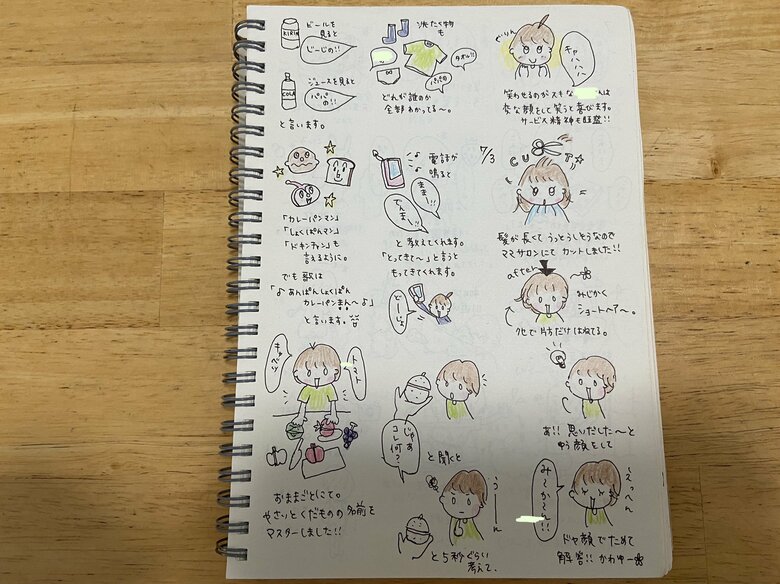 KIRIN
ビールを
見ると
じーじの!!
COLA
ジュースを見ると
パパの!!
と言います。
洗たく物
も
タオル!!
パパの
どれが誰のか
全部わかってる〜。
ぐりん
チャハハハー
笑わせるのがスキな
んは
変な顔をして笑うと喜びます。
サービス精神も旺盛!!
「カレーパンマン」
「しょくぱんマン」
「ドキンチャン」も
言えるように。
でも歌は
「♪あんぱんしょくぱん
カレーパンまん〜♪」
と言います。
電話が
鳴ると
ままー!!
でんまー!!
と教えてくれます。
「とってきて〜」と言うと
もってきてくれます。
どーじょ
7/3
CUT
髪が長くてうっとうしそうなので
ママサロンにてカットしました!!
after
みじかく
ショートヘアー。
クセで片方だけはねてる。
きゃべつ
トマト
おままごとにて。
やさいとくだものの名前を
マスターしました!!
じゃあ
コレ何?
と聞くと
うーん
と5秒ぐらい
考えて、
あ!!思いだした〜と
ゆう顔をして
えっへん
みーかーん!!
ドヤ顔でためて
解答!!かわゆー